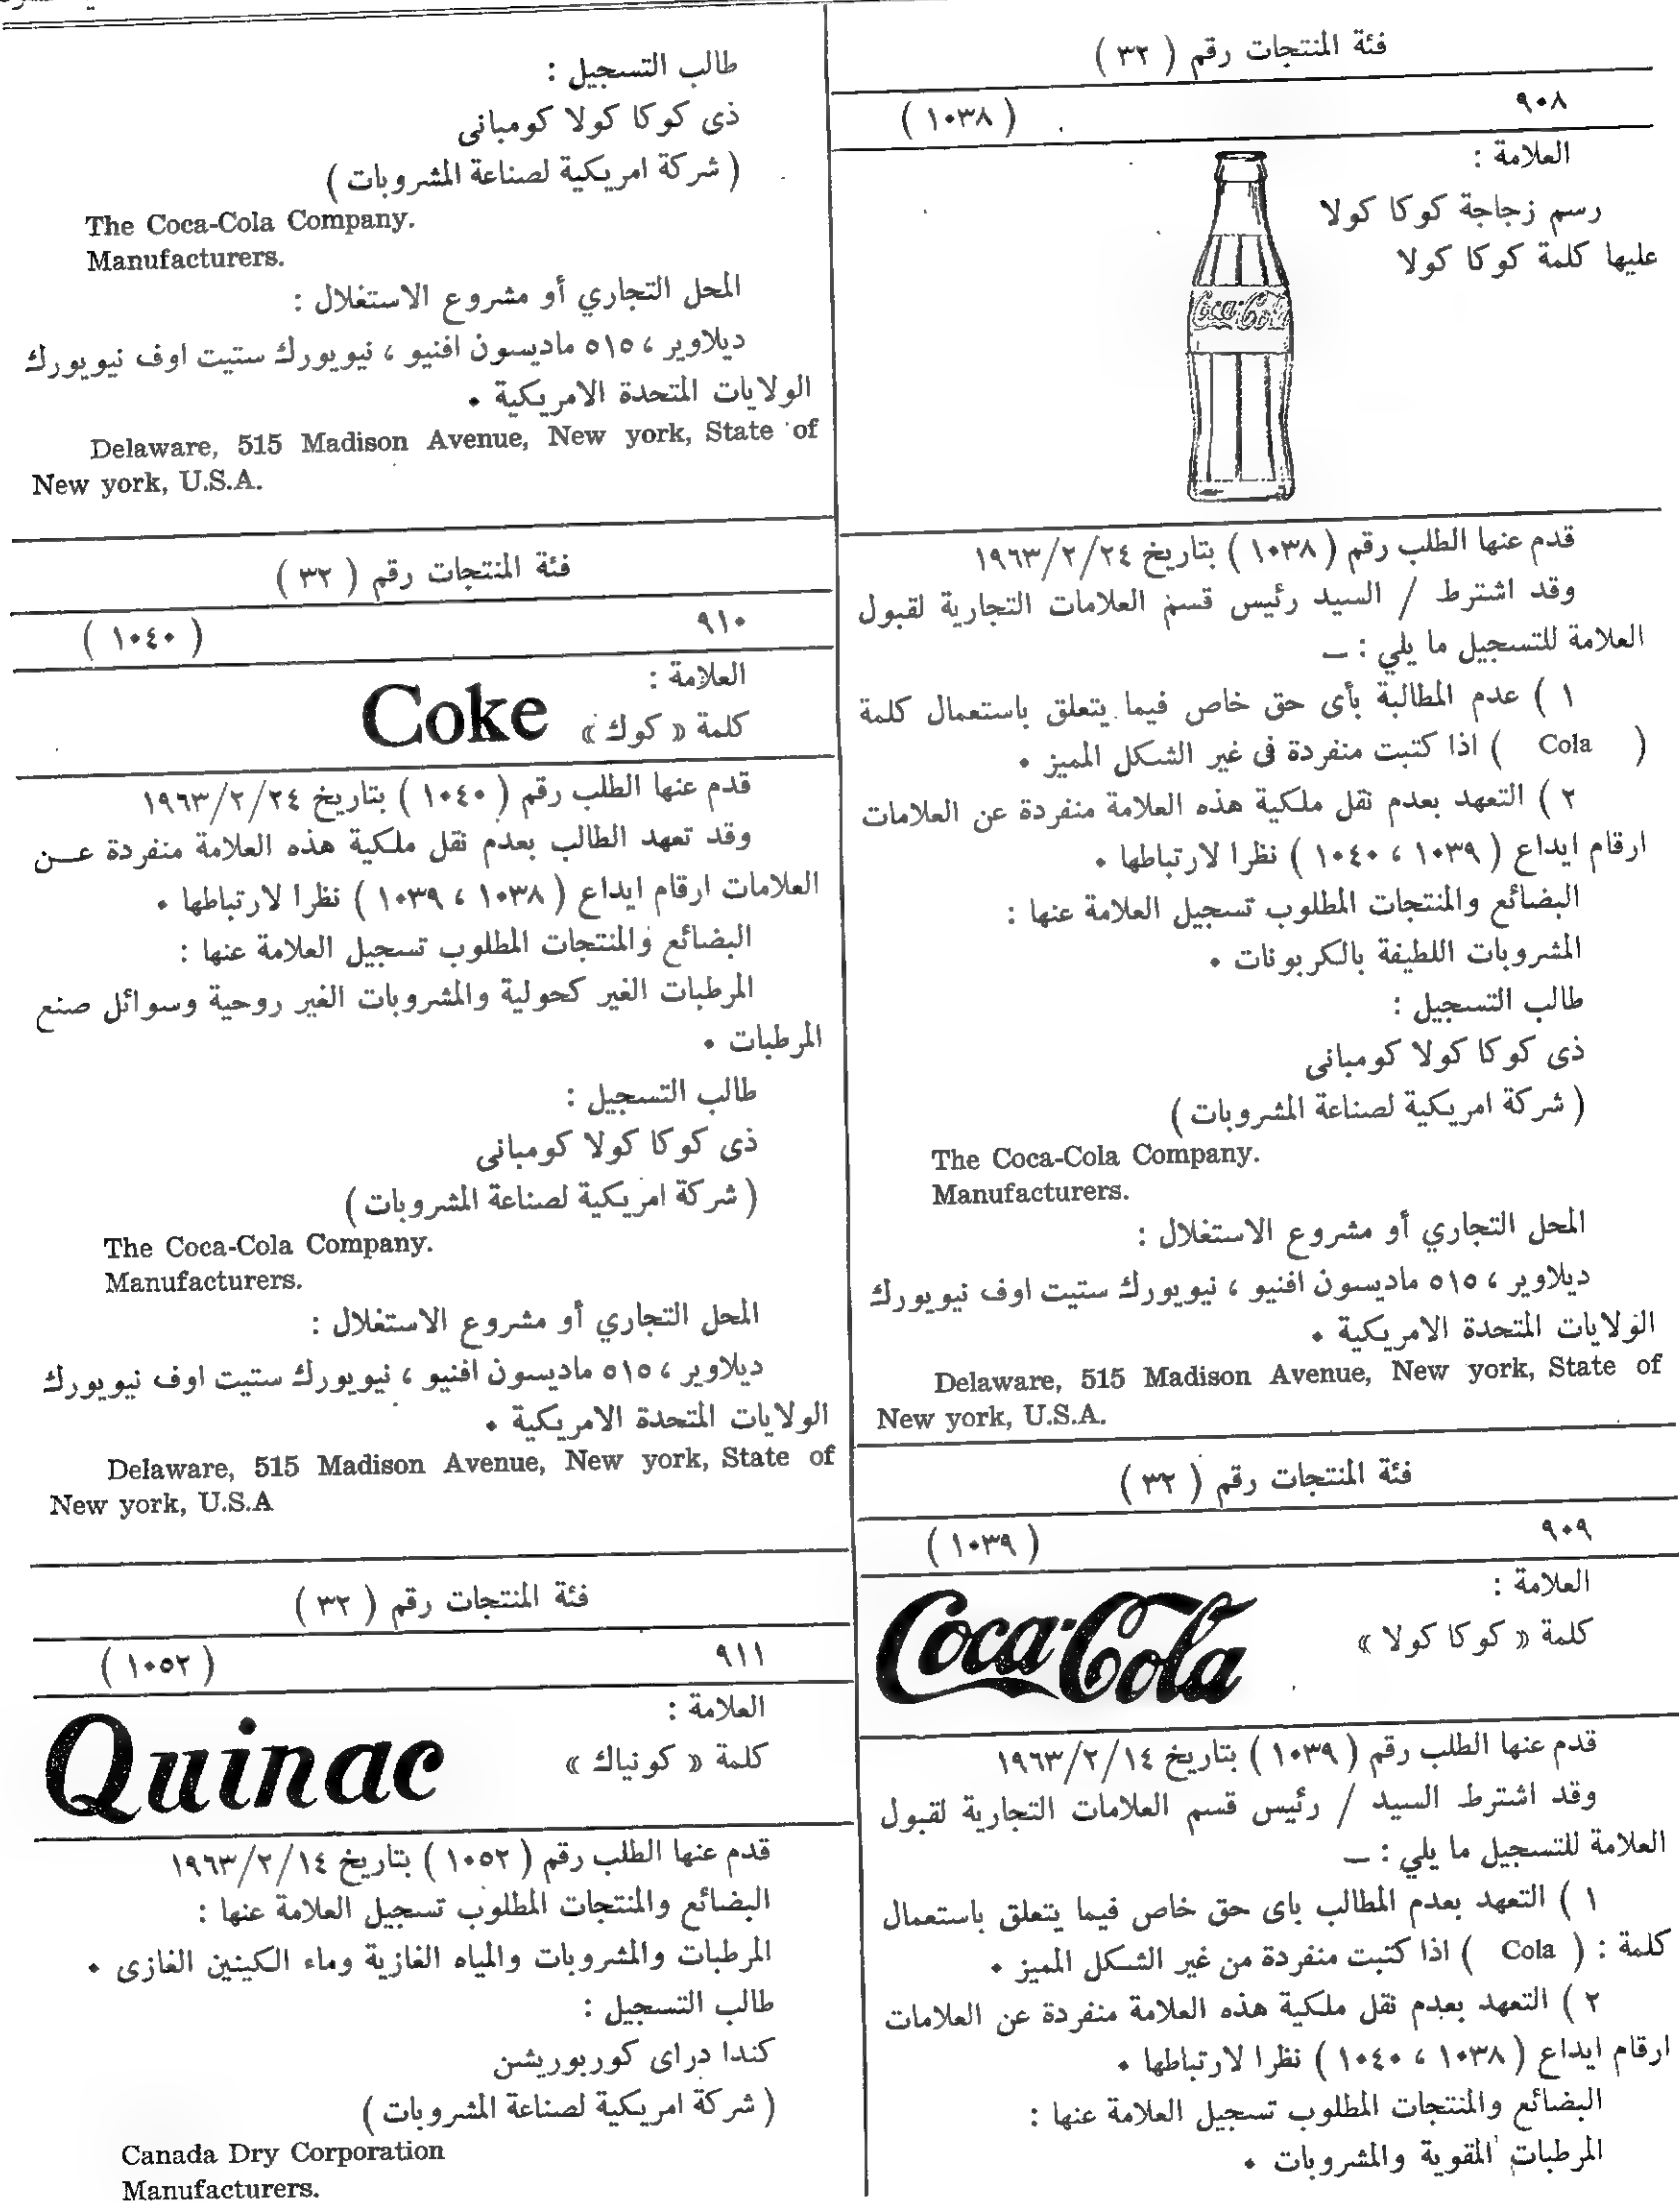 فئة المنتجات رقم ( ٣٢ )
٩٠٨
( ١٠٣٨ )
العلامة :
رسم زجاجة كوكا كولا
عليها كلمة كوكا كولا
Coca-Cola
قدم عنها الطلب رقم ( ١٠٣٨ ) بتاريخ ١٩٦٣/٢/٢٤
وقد اشترط / السيد رئيس قسم العلامات التجارية لقبول
العلامة للتسجيل ما يلي : —
١ ) عدم المطالبة بأى حق خاص فيما يتعلق باستعمال كلمة
( Cola ) اذا كتبت منفردة فى غير الشكل المميز ٠
٢ ) التعهد بعدم نقل ملكية هذه العلامة منفردة عن العلامات
ارقام ايداع ( ١٠٣٩ ، ١٠٤٠ ) نظرا لارتباطها ٠
البضائع والمنتجات المطلوب تسجيل العلامة عنها :
المشروبات اللطيفة بالكربونات ٠
طالب التسجيل :
ذى كوكا كولا كومبانى
( شركة امريكية لصناعة المشروبات )
The Coca-Cola Company.
Manufacturers.
المحل التجاري أو مشروع الاستغلال :
ديلاوير ، ٥١٥ ماديسون افنيو ، نيويورك ستيت اوف نيويورك
الولايات المتحدة الامريكية ٠
Delaware, 515 Madison Avenue, New york, State of
New york, U.S.A.
فئة المنتجات رقم ( ٣٢ )
٩٠٩
( ١٠٣٩ )
العلامة :
كلمة « كوكا كولا »
Coca-Cola
قدم عنها الطلب رقم ( ١٠٣٩ ) بتاريخ ١٩٦٣/٢/١٤
وقد اشترط السيد / رئيس قسم العلامات التجارية لقبول
العلامة للتسجيل ما يلي : —
١ ) التعهد بعدم المطالب باى حق خاص فيما يتعلق باستعمال
كلمة : ( Cola ) اذا كتبت منفردة من غير الشكل المميز ٠
٢ ) التعهد بعدم نقل ملكية هذه العلامة منفردة عن العلامات
ارقام ايداع ( ١٠٣٨ ، ١٠٤٠ ) نظرا لارتباطها ٠
البضائع والمنتجات المطلوب تسجيل العلامة عنها :
المرطبات المقوية والمشروبات ٠
طالب التسجيل :
ذى كوكا كولا كومبانى
( شركة امريكية لصناعة المشروبات )
The Coca-Cola Company.
Manufacturers.
المحل التجاري أو مشروع الاستغلال :
ديلاوير ، ٥١٥ ماديسون افنيو ، نيويورك ستيت اوف نيويورك
الولايات المتحدة الامريكية ٠
Delaware, 515 Madison Avenue, New york, State of
New york, U.S.A.
فئة المنتجات رقم ( ٣٢ )
٩١٠
( ١٠٤٠ )
العلامة :
كلمة « كوك » Coke
قدم عنها الطلب رقم ( ١٠٤٠ ) بتاريخ ١٩٦٣/٢/٢٤
وقد تعهد الطالب بعدم نقل ملكية هذه العلامة منفردة عـــن
العلامات ارقام ايداع ( ١٠٣٨ ، ١٠٣٩ ) نظرا لارتباطها ٠
البضائع والمنتجات المطلوب تسجيل العلامة عنها :
المرطبات الغير كحولية والمشروبات الغير روحية وسوائل صنع
المرطبات ٠
طالب التسجيل :
ذى كوكا كولا كومبانى
( شركة امريكية لصناعة المشروبات )
The Coca-Cola Company.
Manufacturers.
المحل التجاري أو مشروع الاستغلال :
ديلاوير ، ٥١٥ ماديسون افنيو ، نيويورك ستيت اوف نيويورك
الولايات المتحدة الامريكية ٠
Delaware, 515 Madison Avenue, New york, State of
New york, U.S.A
فئة المنتجات رقم ( ٣٢ )
٩١١
( ١٠٥٢ )
العلامة :
كلمة « كونياك »
Quinac
قدم عنها الطلب رقم ( ١٠٥٢ ) بتاريخ ١٩٦٣/٢/١٤
البضائع والمنتجات المطلوب تسجيل العلامة عنها :
المرطبات والمشروبات والمياه الغازية وماء الكينين الغازى ٠
طالب التسجيل :
كندا دراى كوربوريشن
( شركة امريكية لصناعة المشروبات )
Canada Dry Corporation
Manufacturers.